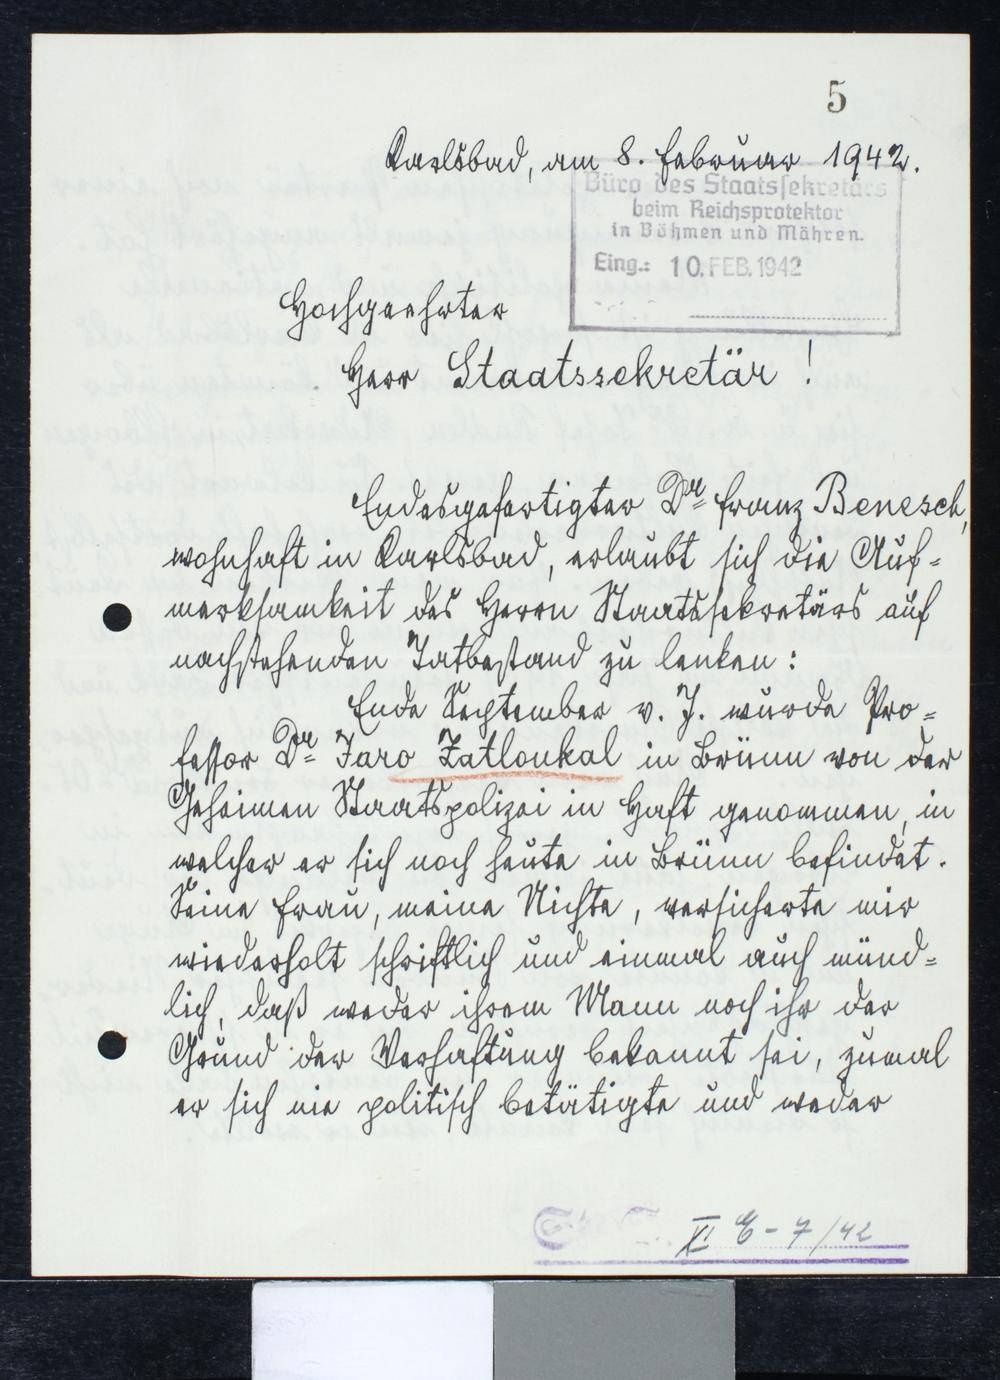 5
Karlsbad, am 8. Februar 1942.
Büro des Staatssekretärs
beim Reichsprotektor
in Böhmen und Mähren.
Eing.: 10. FEB. 1942
Hochgeehrter
Herr Staatssekretär!
Endesgefertigter Dr. Franz Benesch,
wohnhaft in Karlsbad, erlaubt sich die Auf-
merksamkeit des Herrn Staatssekretärs auf
nachstehenden Tatbestand zu lenken:
Ende September v. J. wurde Pro-
fessor Dr. Jaro Zatloukal in Brünn von der
Geheimen Staatspolizei in Haft genommen, in
welcher er sich noch heute in Brünn befindet.
Seine Frau, meine Nichte, versicherte mir
wiederholt schriftlich und einmal auch münd-
lich, daß weder ihrem Mann noch ihr der
Grund der Verhaftung bekannt sei, zumal
er sich nie politisch betätigte und weder
XI - 7/42